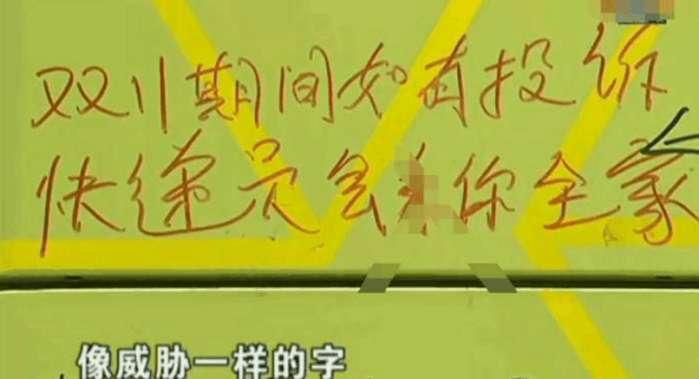 双11期间如有投诉
快递员会你全家
像威胁一样的字